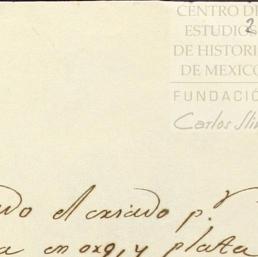 CENTRO DE
ESTUDIOS
DE HISTORI
DE MEXICO
FUNDACIÓ
Carlos Sli
2
do el criado p.r
a en oxo, y plata